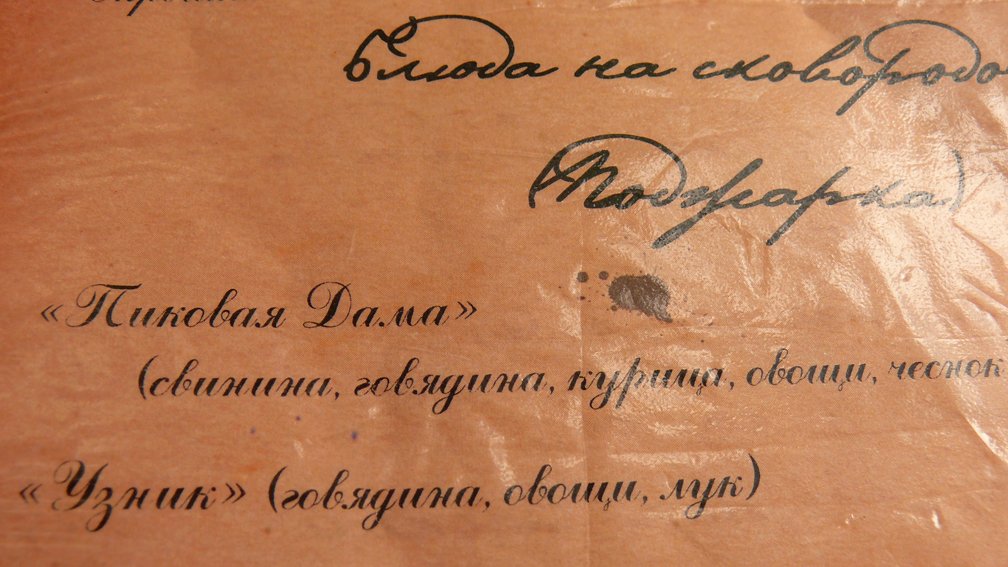 Блюда на сковородо
(Поджарка)
«Пиковая Дама»
(свинина, говядина, курица, овощи, чеснок
«Узник» (говядина, овощи, лук)